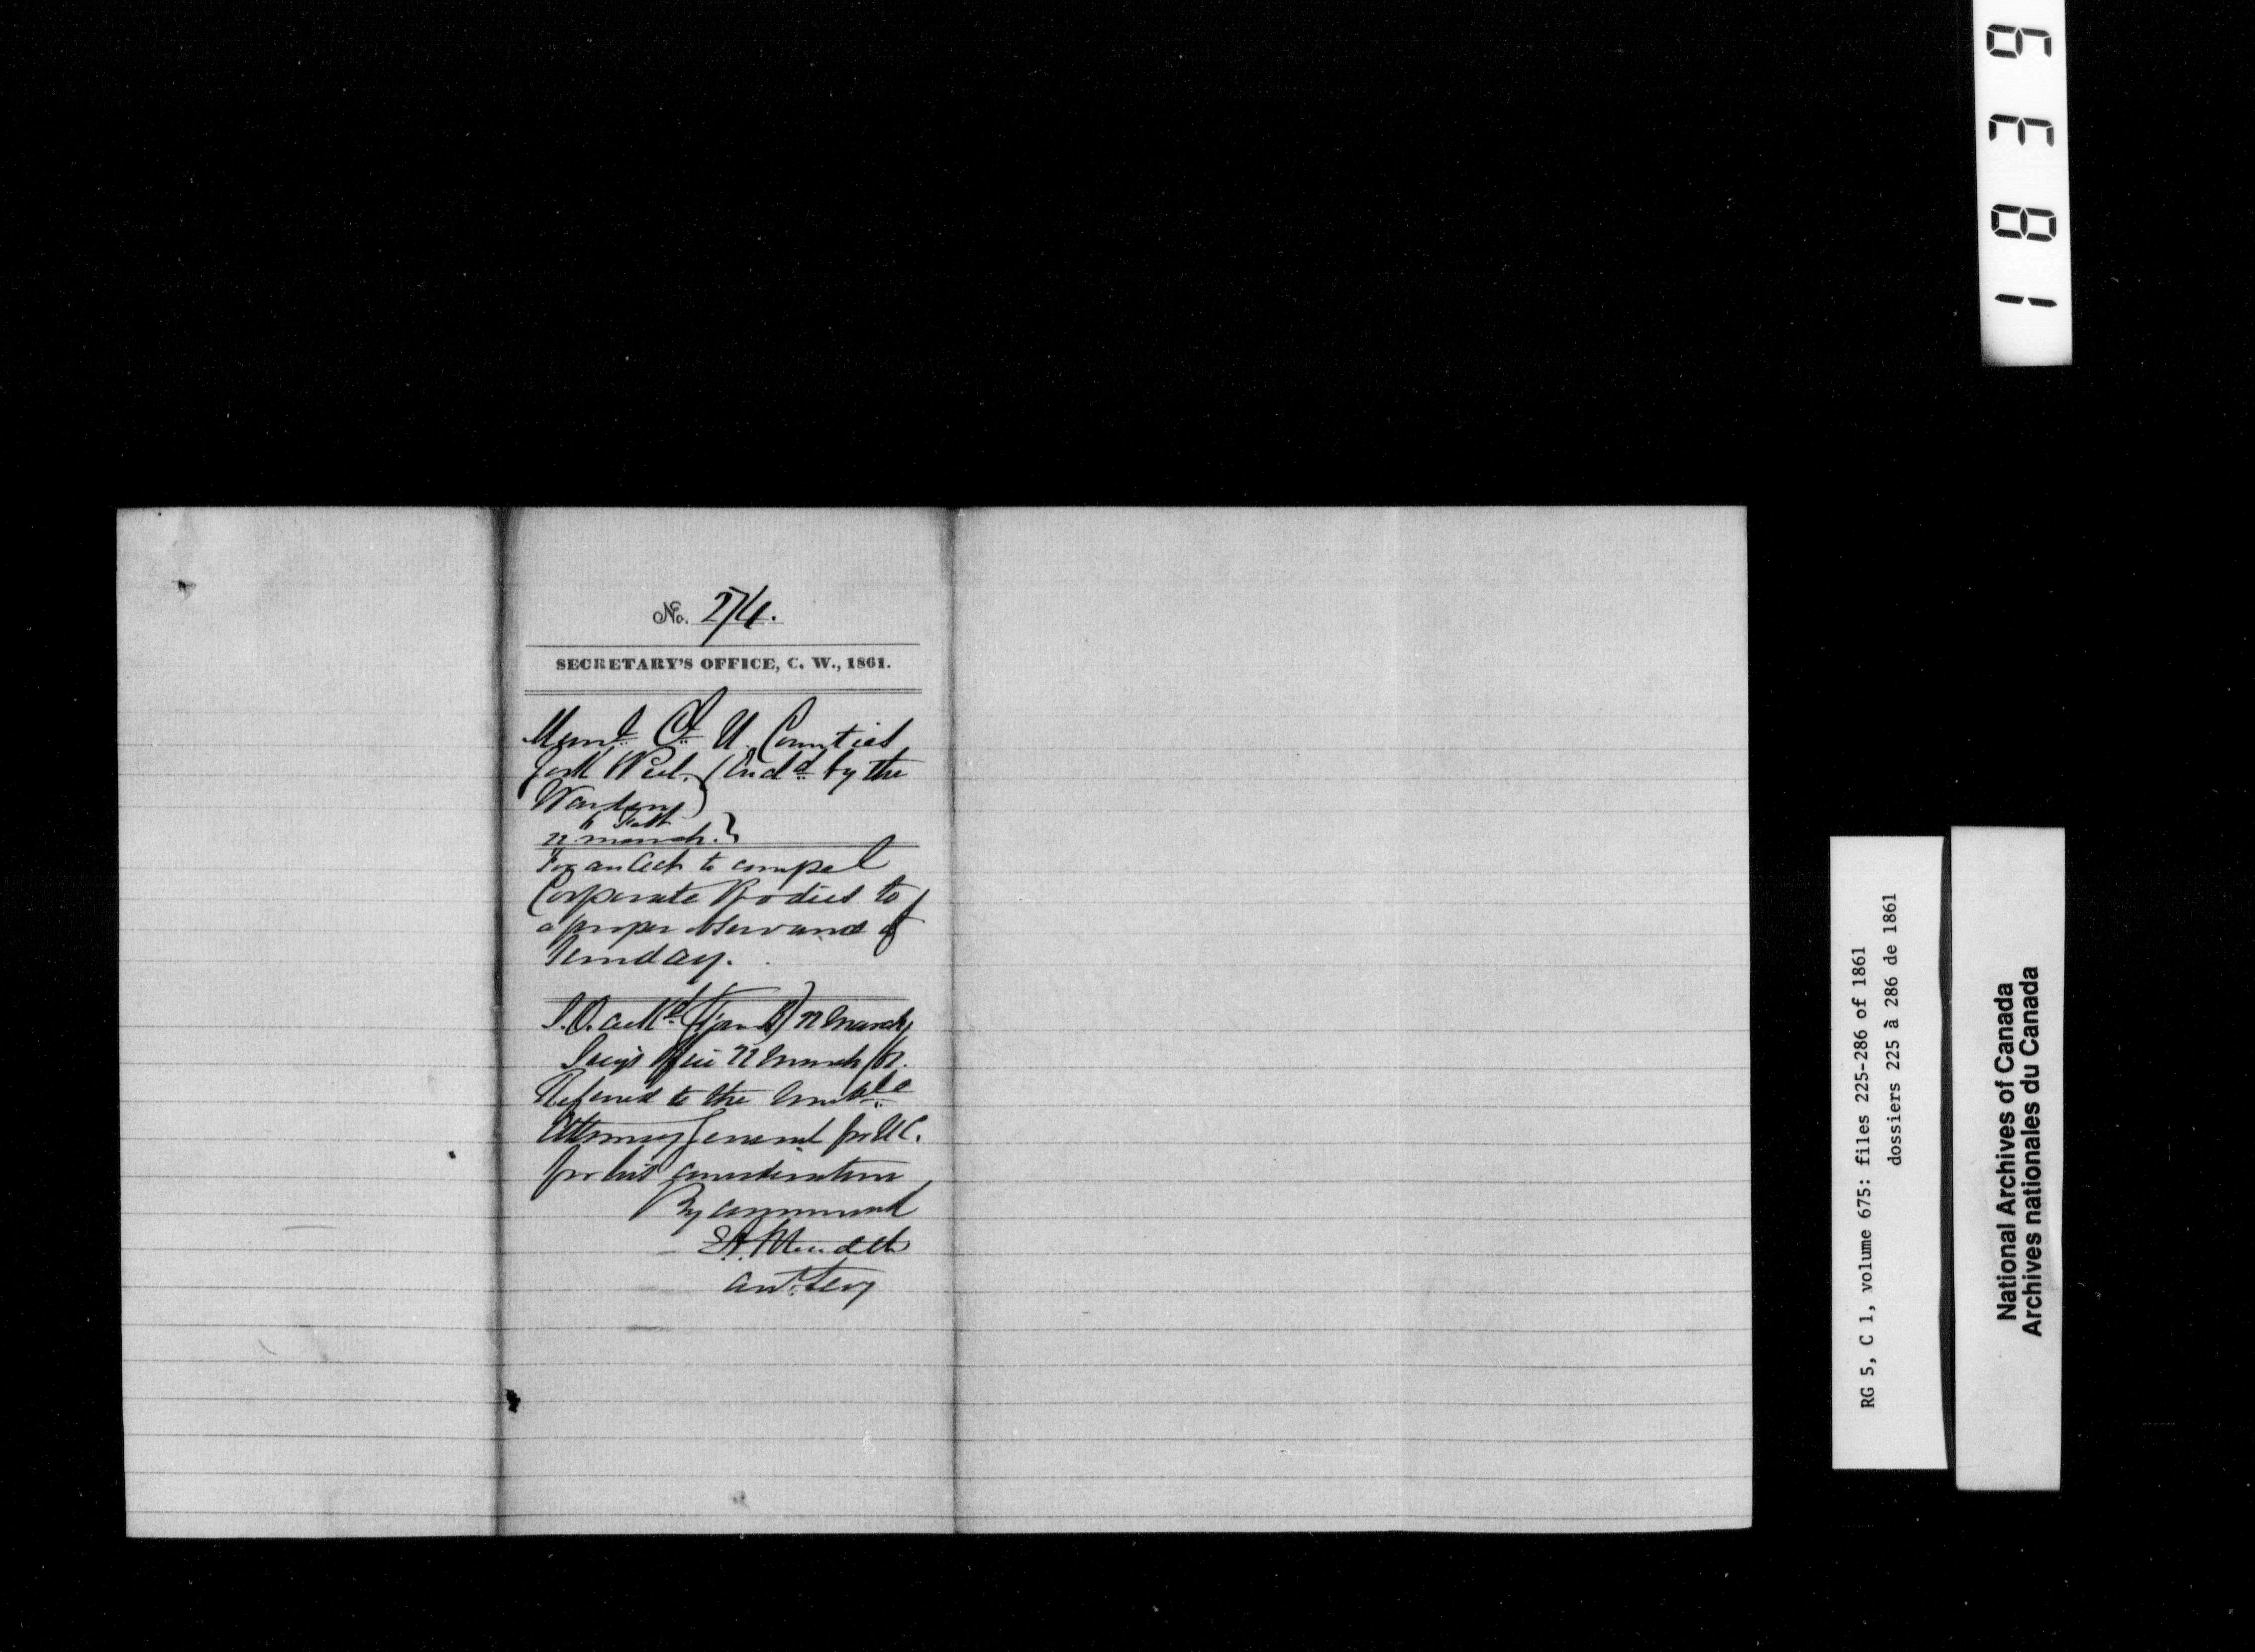 No. 274.
SECRETARY'S OFFICE, C. W., 1861.
Munl. Cl. U. Counties
York & Peel. (Encd. by the
Warden)
22 March.
For an Act to compel
Corporate Bodies to
a proper observance of
Sunday.
22 March
Secy's Office 22 March /61.
Referred to the Honble
Attorney General for U.C.
for his consideration
By command
E A Meredith
Asst. Secy
1839
RG 5, C 1, volume 675: files 225-286 of 1861
dossiers 225 à 286 de 1861
National Archives of Canada
Archives nationales du Canada